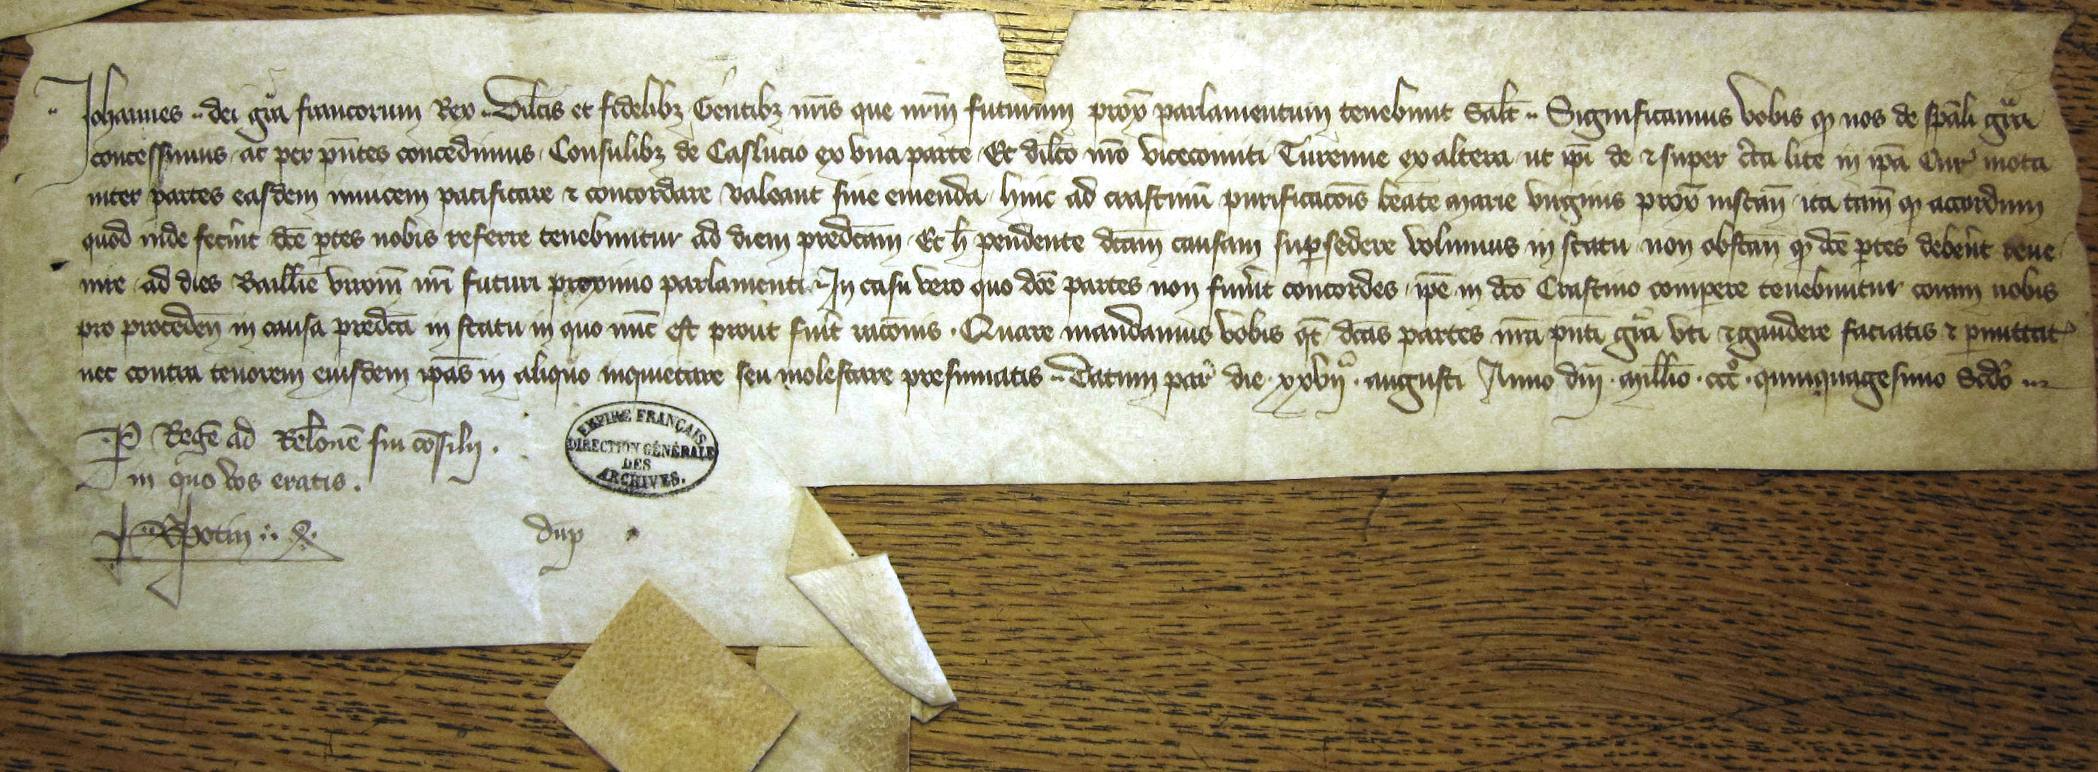 Johannes dei gr̃a francorum Rex Dilcĩs et fidelibꝫ Gentibꝫ nr̃is que nr̃m futurum prox̃ parlamentum tenebunt Salt̃ Significamus vobis ꝙ nos de sp̃ali gr̃a
concessimus ac per pñtes concedimus Consulibꝫ de Caslucio ex vna parte Et dilc̃o nr̃o vicecomiti Turenne ex altera ut ip̃i de ⁊ super c̃ta lite in ip̃a Cur̃ mota
inter partes easdem inuicem pacificare ⁊ concordare valeant sine emenda hinc ad crastinũ purificac̃ois beate marie virginis prox̃ instañ ita tam̃ ꝙ accordum
quod inde fec̃int dc̃e ꝑtes nobis referre tenebuntur ad diem predc̃am Et h̃ pendente dc̃am causam suꝑsedere volumus in statu non obstañ ꝙ dc̃e ꝑtes debeñt eue
nire ad dies Baillie nr̃i futuri proximo parlamenti In casu vero quo dc̃e partes non fueñt concordes ip̃e in dc̃o Crastino compere tenebuntur coram nobis
pro procedeñ in causa predc̃a in statu in quo nũc est prout fueĩt rac̃onis Quare mandamus vobis qt̃ dc̃as partes nr̃a pñti gr̃a vti ⁊ gaudere faciatis ⁊ ꝑmittatꝭ
nec contra tenorem eiusdem ip̃as in aliquo inquietare seu molestare presumatis Datum par̃ die xxvijº augusti Anno dñi millĩo cccº quinquagesimo Scd̃o
P Regẽ ad Rel̃onẽ sui cõsilij
in quo vos eratis
Potin
dup
EMPIRE FRANÇAIS.
DIRECTION GÉNÉRALE
DES
ARCHIVES.